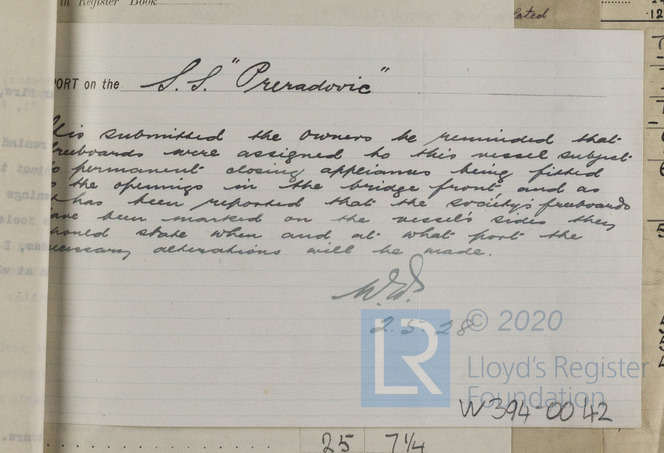 in Register Book
lated
PORT on the S.S. "Preradovic"
t is submitted the owners be reminded that
freeboards were assigned to this vessel subject
to permanent closing appliances being fitted
to the openings in the bridge front and as
it has been reported that the society's freeboards
have been marked on the vessel's sides they
should state when and at what port the
necessary alterations will be made.
2.5.28
LR © 2020
Lloyd's Register
Foundation
W394-0042
25 7¼